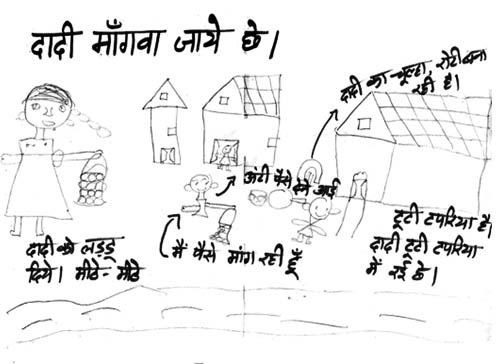 दादी माँगवा जाये छे।
दादी का चूल्हा, रोटी बना
रही है।
अंटी पैसे देने आई
मैं पैसे मांग रही हूँ
दादी को लड्डू
दिये। मीठे-मीठे
टूटी टपरिया है।
दादी टूटी टपरिया
में रई छे।